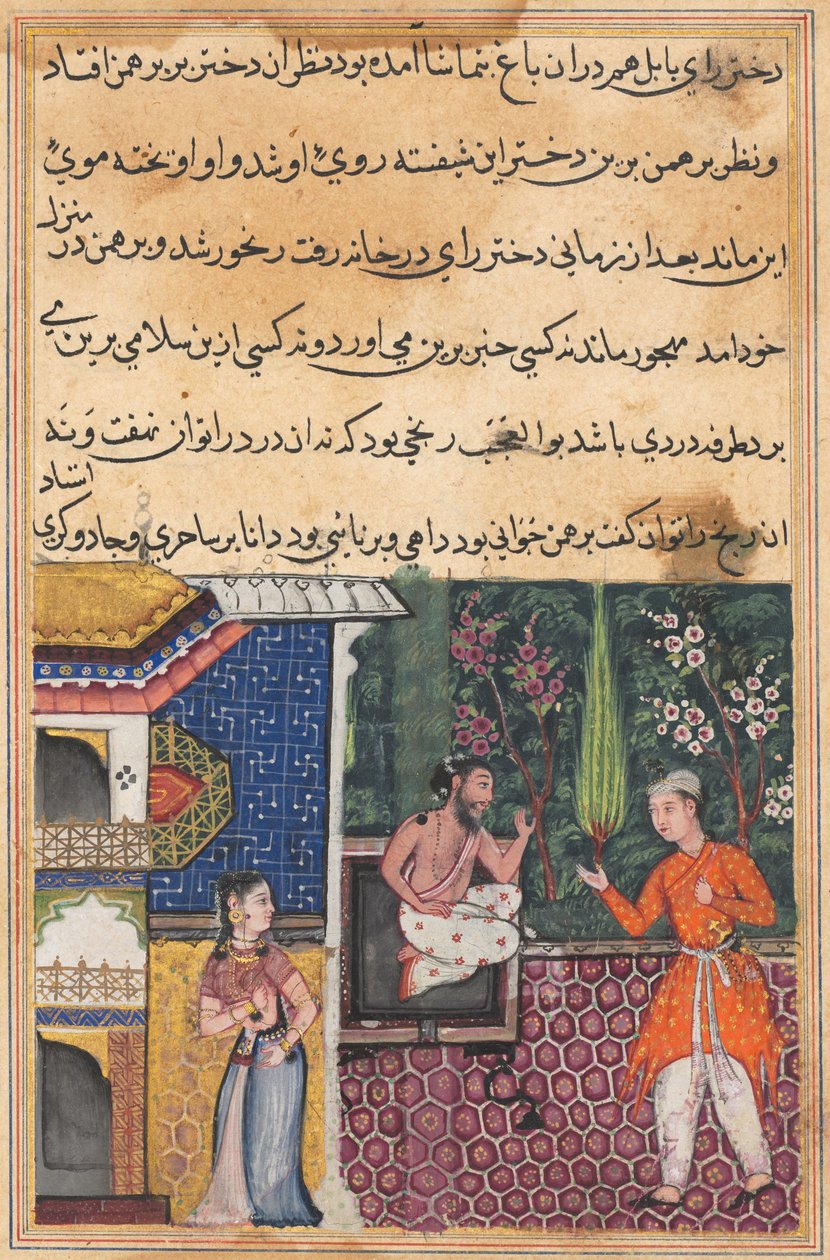 دختر راي بابل هم دران باغ بتماشا آمده بود نظر ان دختر بر برهمن افتاد
و نظر برهمن برين دختر اين شيفته روي او شد و او اوبخته موي
اين ماند بعد از زماني دختر راي در خانه رفت رنجور شد و برهمن در منزل
خود امد مهجور ماند نه كسي خبر برين مي اورد و نه كسي ازين سلامي برين مي
برد طرفه دردي باشد بوالعجب رنجي بود كه نه ان درد را توان نهفت و نه
ان رنج را توان كفت برهمن جواني بود داهي و برنائي بود دانا بر ساحري و جادوكري استاد